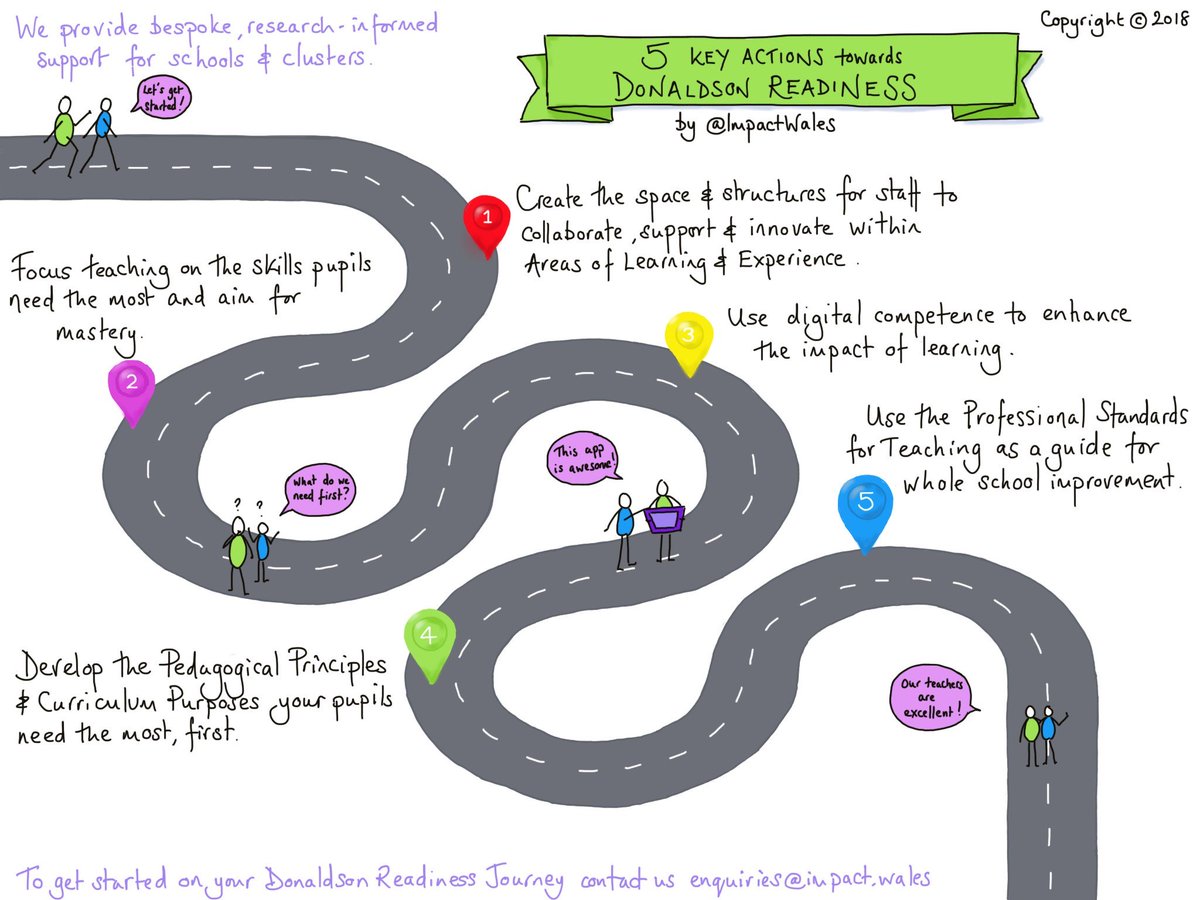 We provide bespoke, research-informed
support for schools & clusters.
Copyright © 2018
5 KEY ACTIONS towards
DONALDSON READINESS
by @ImpactWales
Let's get
started!
1
Create the space & structures for staff to
collaborate, support & innovate within
Areas of Learning & Experience.
Focus teaching on the skills pupils
need the most and aim for
mastery.
2
3
Use digital competence to enhance
the impact of learning.
? ?
What do we
need first?
This app
is awesome!
Use the Professional Standards
for Teaching as a guide for
whole school improvement.
5
4
Develop the Pedagogical Principles
& Curriculum Purposes your pupils
need the most, first.
Our teachers
are
excellent!
To get started on your Donaldson Readiness Journey contact us enquiries@impact.wales